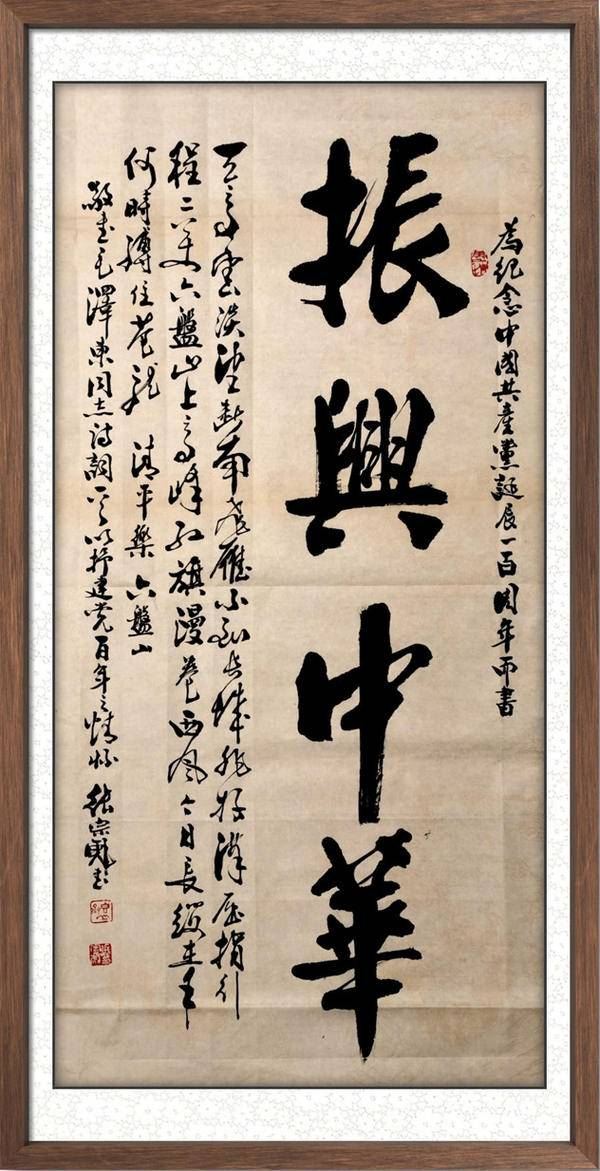 為紀念中國共產黨誕辰一百周年而書
振興中華
天高雲淡望断南飛雁不到长城非好漢屈指行
程二万六盤山上高峰红旗漫卷西风今日長缨在手
何時縛住苍龙 清平樂 六盤山
敬书毛澤東同志诗詞一首以抒建党百年之情怀 张宗